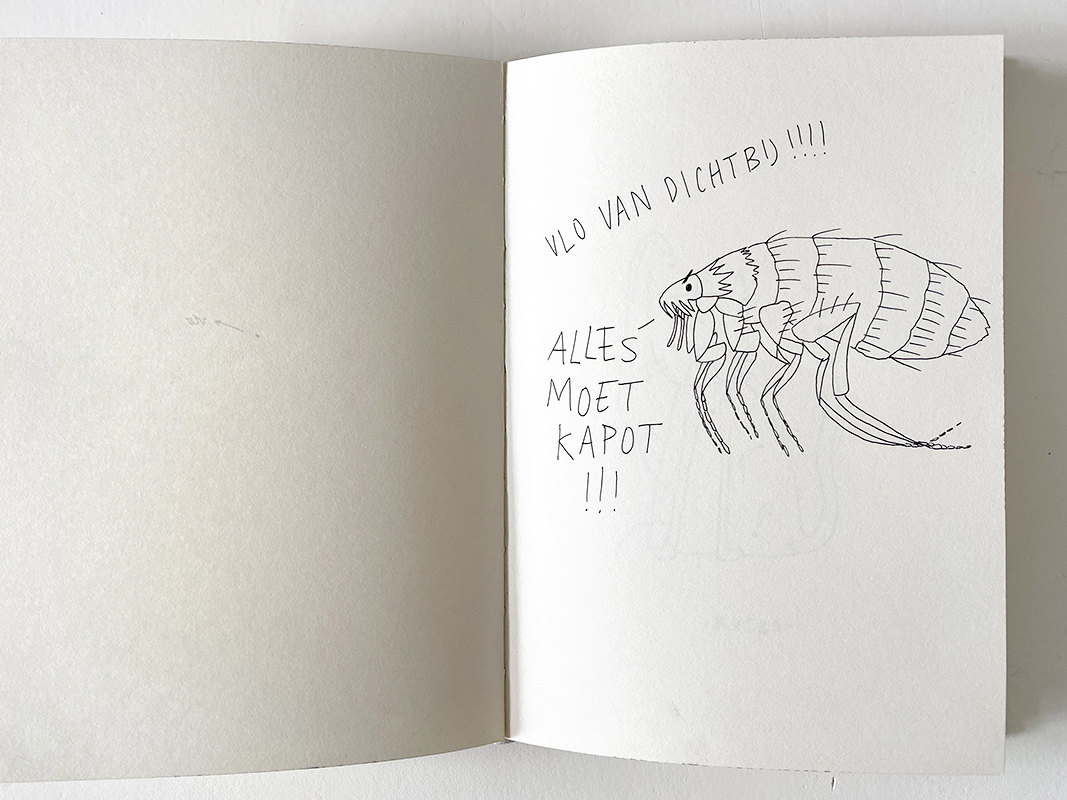 VLO VAN DICHTBIJ !!!!
ALLES
MOET
KAPOT
!!!